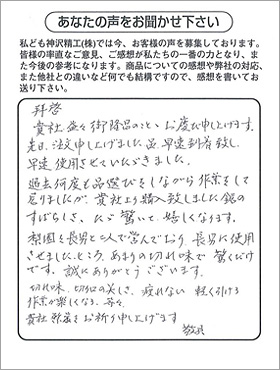 あなたの声をお聞かせ下さい
私ども神沢精工(株)では今、お客様の声を募集しております。
皆様の率直なご意見、ご感想が私たちの一番の力となり、ま
た今後の参考になります。商品についての感想や弊社の対応、
また他社との違いなど何でも結構ですので、感想を書いてお
送り下さい。
拝啓
貴社益々御隆昌のことゝお慶び申し上げます。
先日、注文申し上げました品早速到着致し
早速使用させていたゞきました。
過去何度も品選びをしながら作業をして
居りましたが、貴社より購入致しました鋸の
すばらしさ、たゞ驚いて、嬉しくなります。
梨園を長男と二人で営んでおり、長男に使用
させました。ところ、あまりの切れ味で驚くだけ
です。誠にありがとうございます。
切れ味、切口の美しさ、疲れない 軽く引ける
作業が楽しくなる、等々、
貴社 発展をお祈り申し上げます
敬具